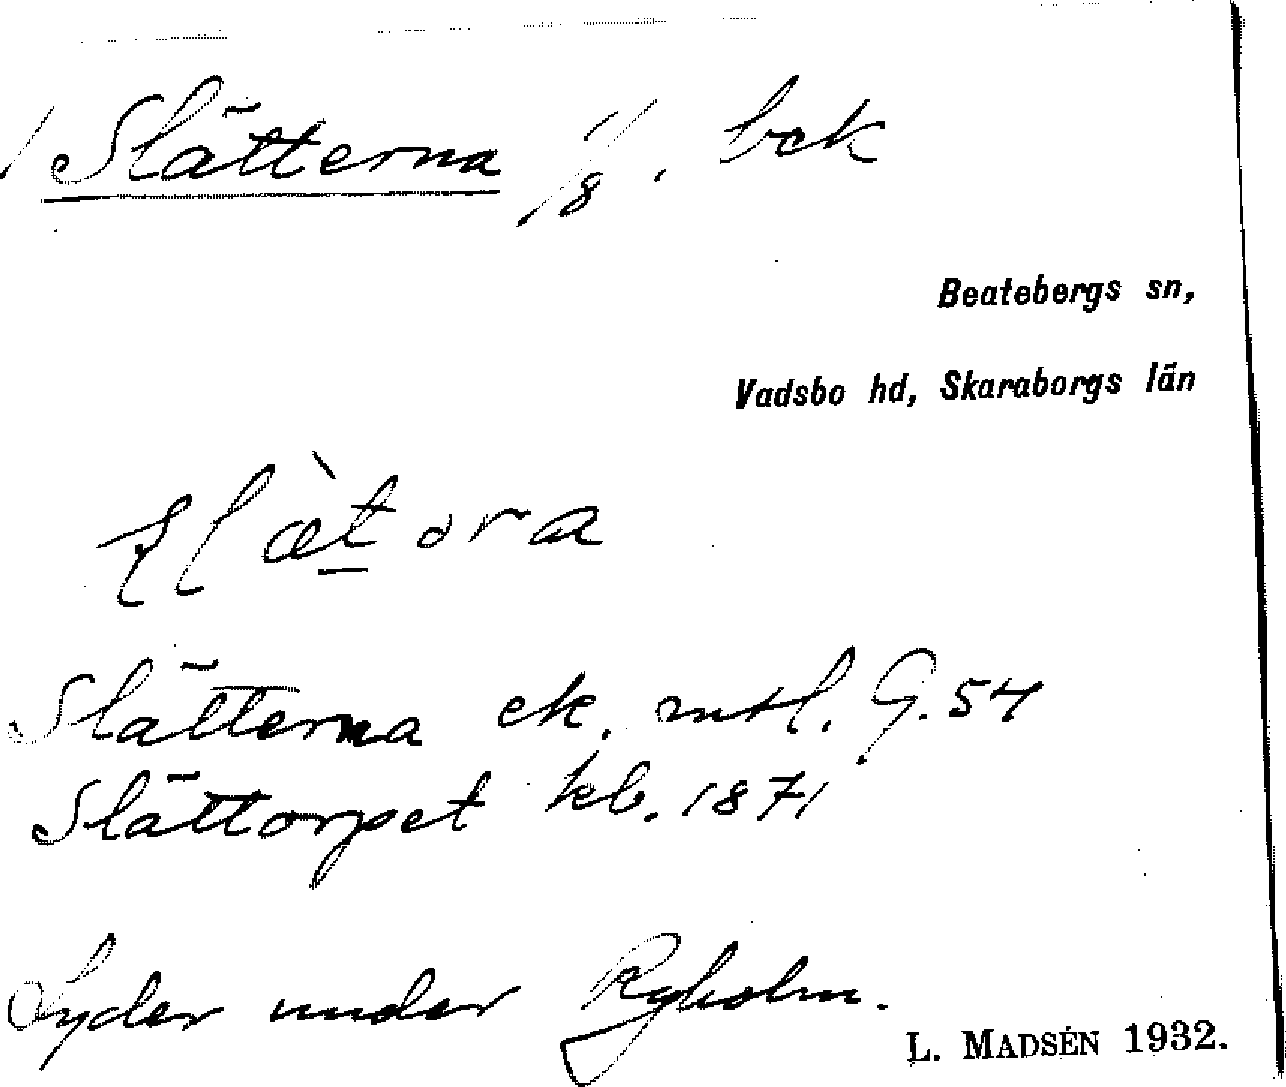 Slätterna 1/8. bck
Beatebergs sn,
Vadsbo hd, Skaraborgs län
Slätterna ek. mtl. G. 54
Slättorpet kb. 1871
Lyder under Ryholm.
L. MADSÉN 1932.